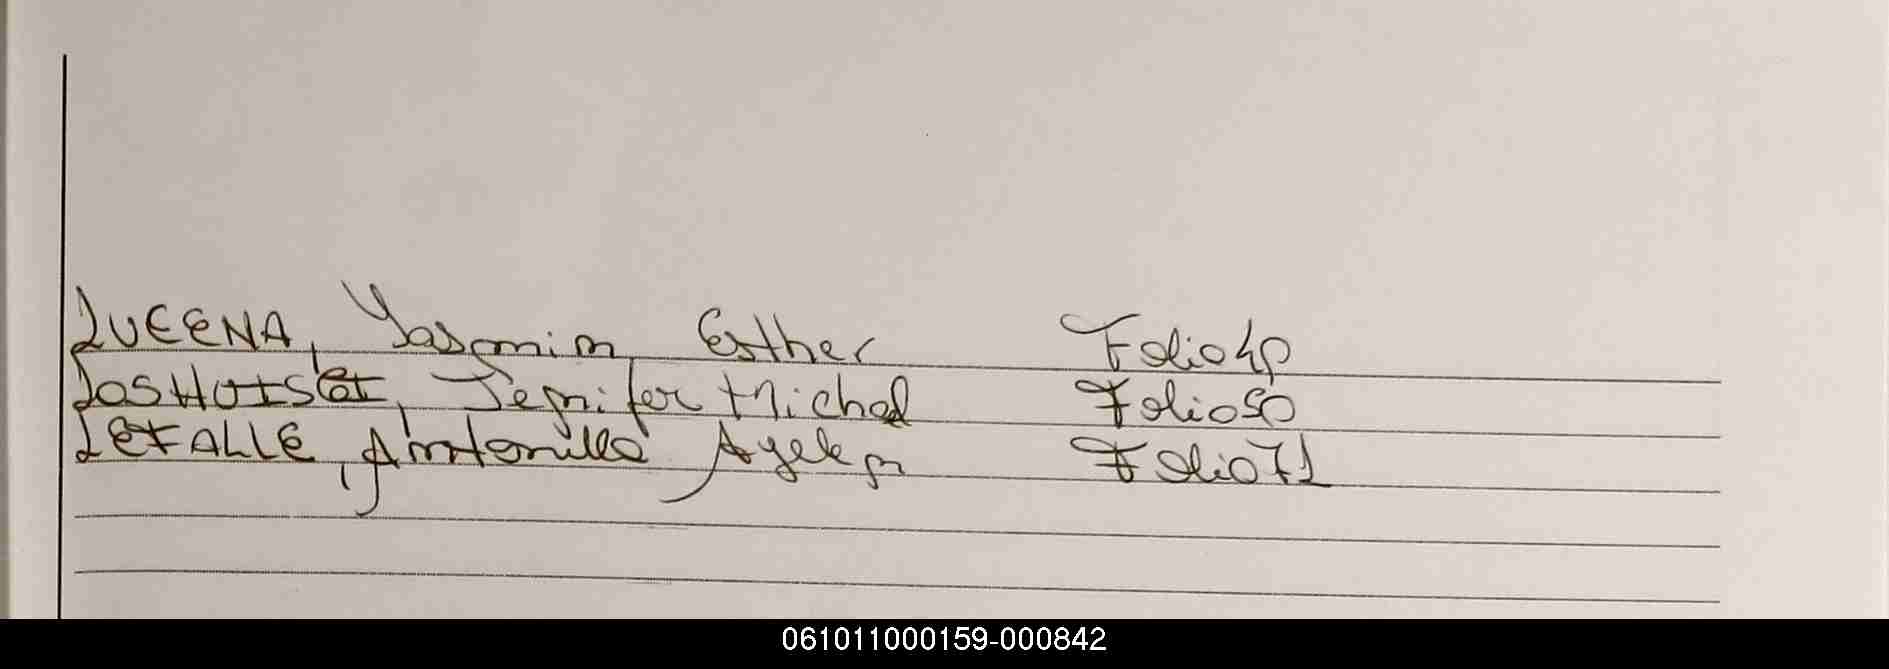 LUCENA, Yasmin Esther Folio 49
Jenifer Michel Folio 50
LEFALLE, Antonella Ayelen Folio 71
061011000159-000842